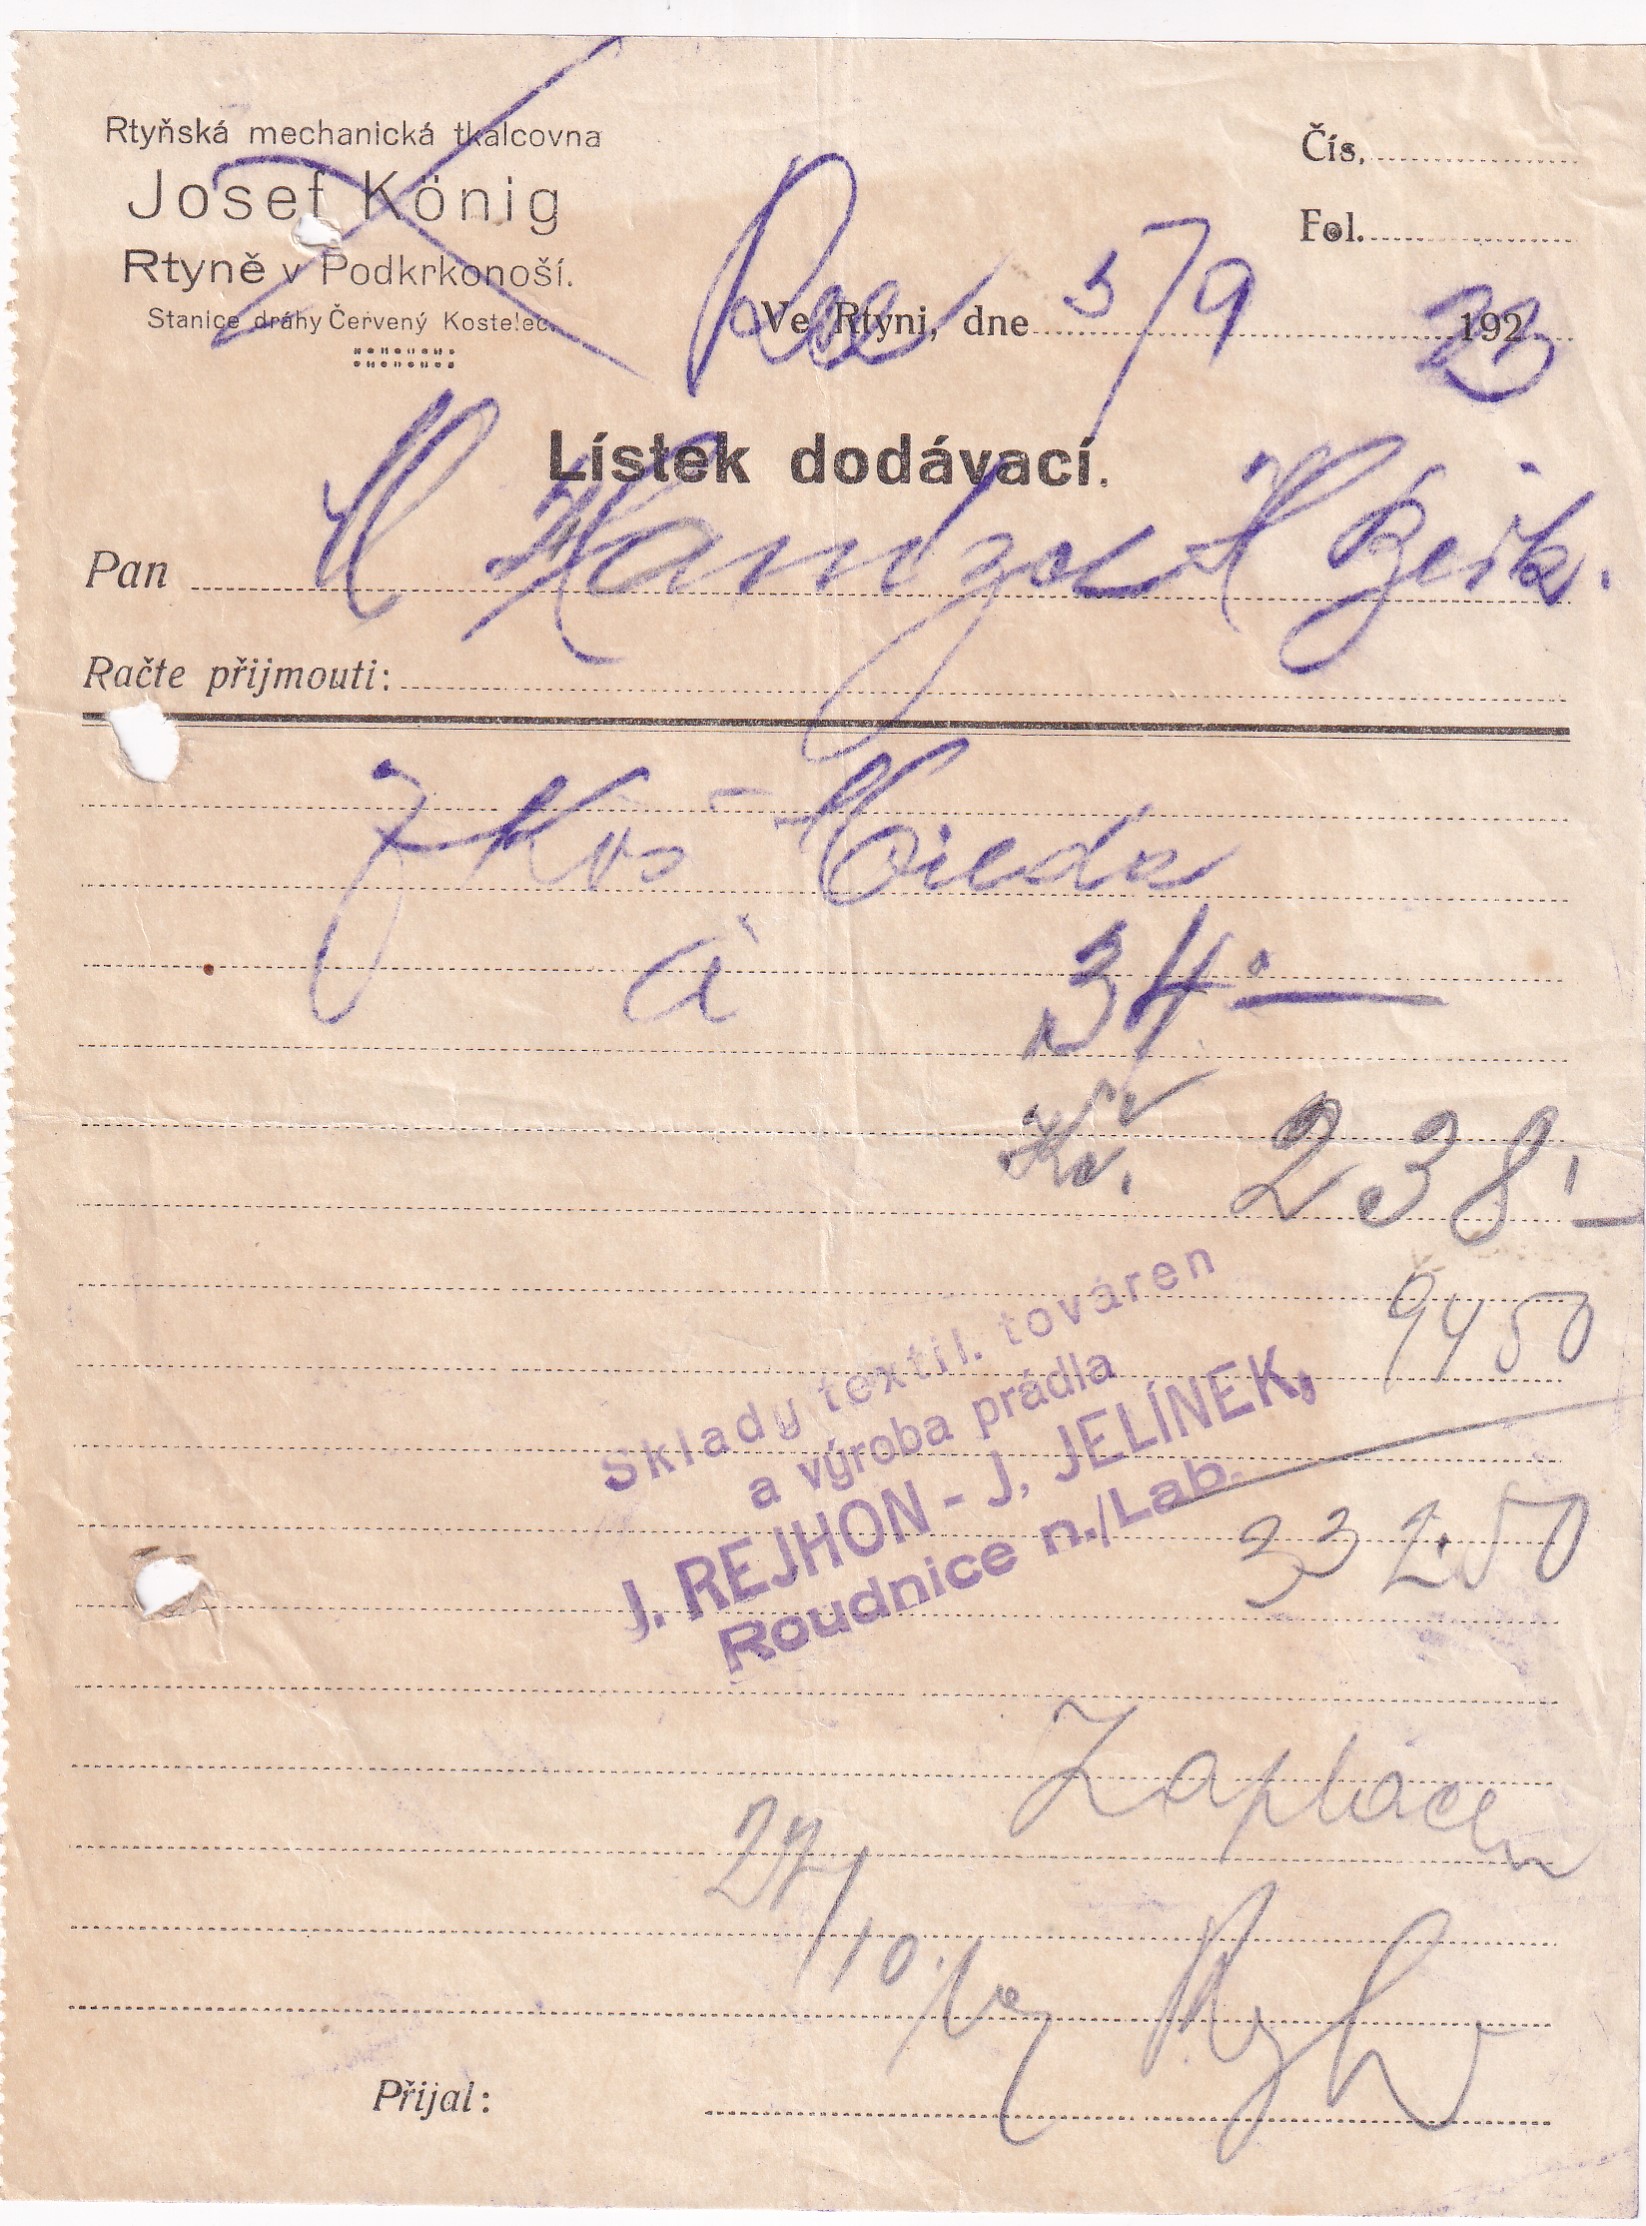 Rtyňská mechanická tkalcovna
Josef König
Rtyně v Podkrkonoší.
Stanice dráhy Červený Kostelec.
Čís.
Fol.
Ve Rtyni, dne 5/9 1923
Lístek dodávací.
Pan
Račte přijmouti:
7 Kus
à 34·—
Kč. 238'—
94 50
332·50
Sklady textil. továren
a výroba prádla
J. REJHON - J. JELÍNEK,
Roudnice n./Lab.
Zaplácen
27/10.
Přijal: